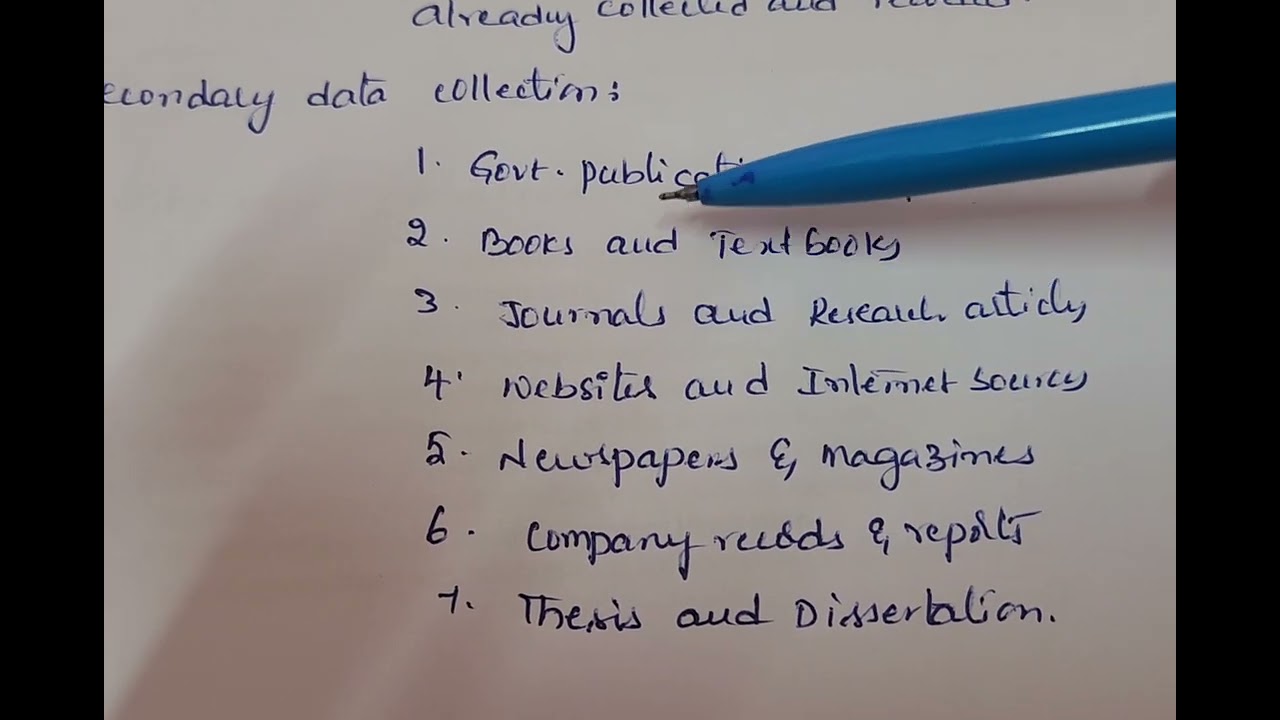 already collected and
econdary data collection:
1. Govt. publicati
2. Books and Textbooks
3. Journals and Research articles
4. Websites and Internet sources
5. Newspapers & magazines
6. Company records & reports
7. Thesis and Dissertation.